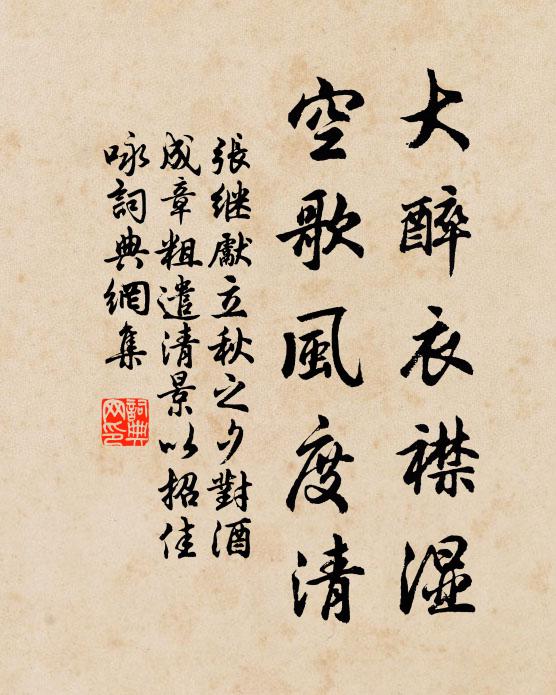 大醉衣襟湿
空歌風度清
張继獻立秋之夕對酒
成章粗遣清景以招佳
咏詞典網集
詞典网印